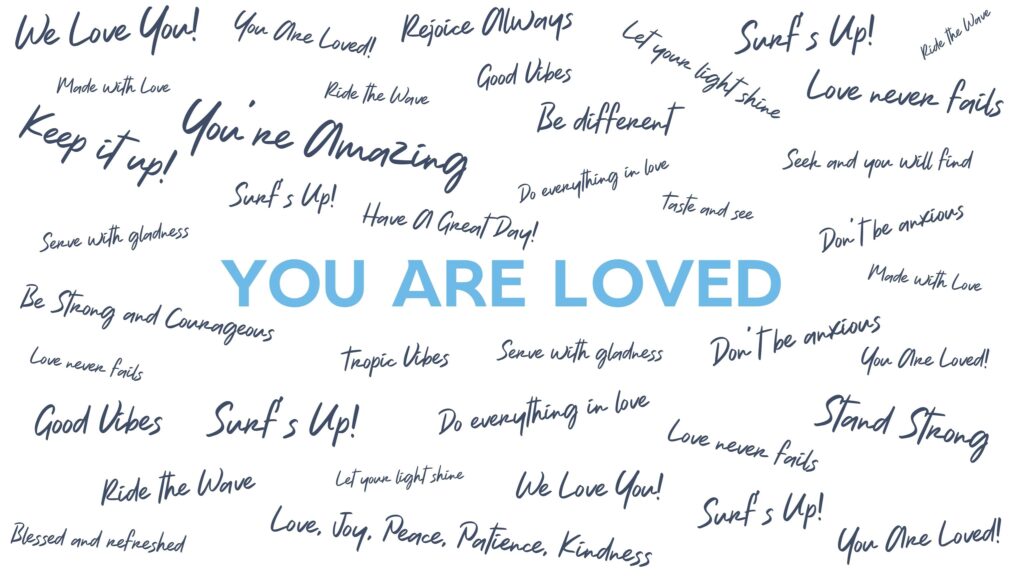 We Love You!
You Are Loved!
Rejoice Always
Let your light shine
Surf's Up!
Ride the Wave
Made with Love
Ride the Wave
Good Vibes
Love never fails
Keep it up!
You're Amazing
Be different
Seek and you will find
Surf's Up!
Do everything in love
Taste and see
Have A Great Day!
Don't be anxious
Serve with gladness
YOU ARE LOVED
Made with Love
Be Strong and Courageous
Don't be anxious
Love never fails
Tropic Vibes
Serve with gladness
You Are Loved!
Good Vibes
Surf's Up!
Do everything in love
Stand Strong
Love never fails
Ride the Wave
Let your light shine
We Love You!
Surf's Up!
Blessed and refreshed
Love, Joy, Peace, Patience, Kindness
You Are Loved!